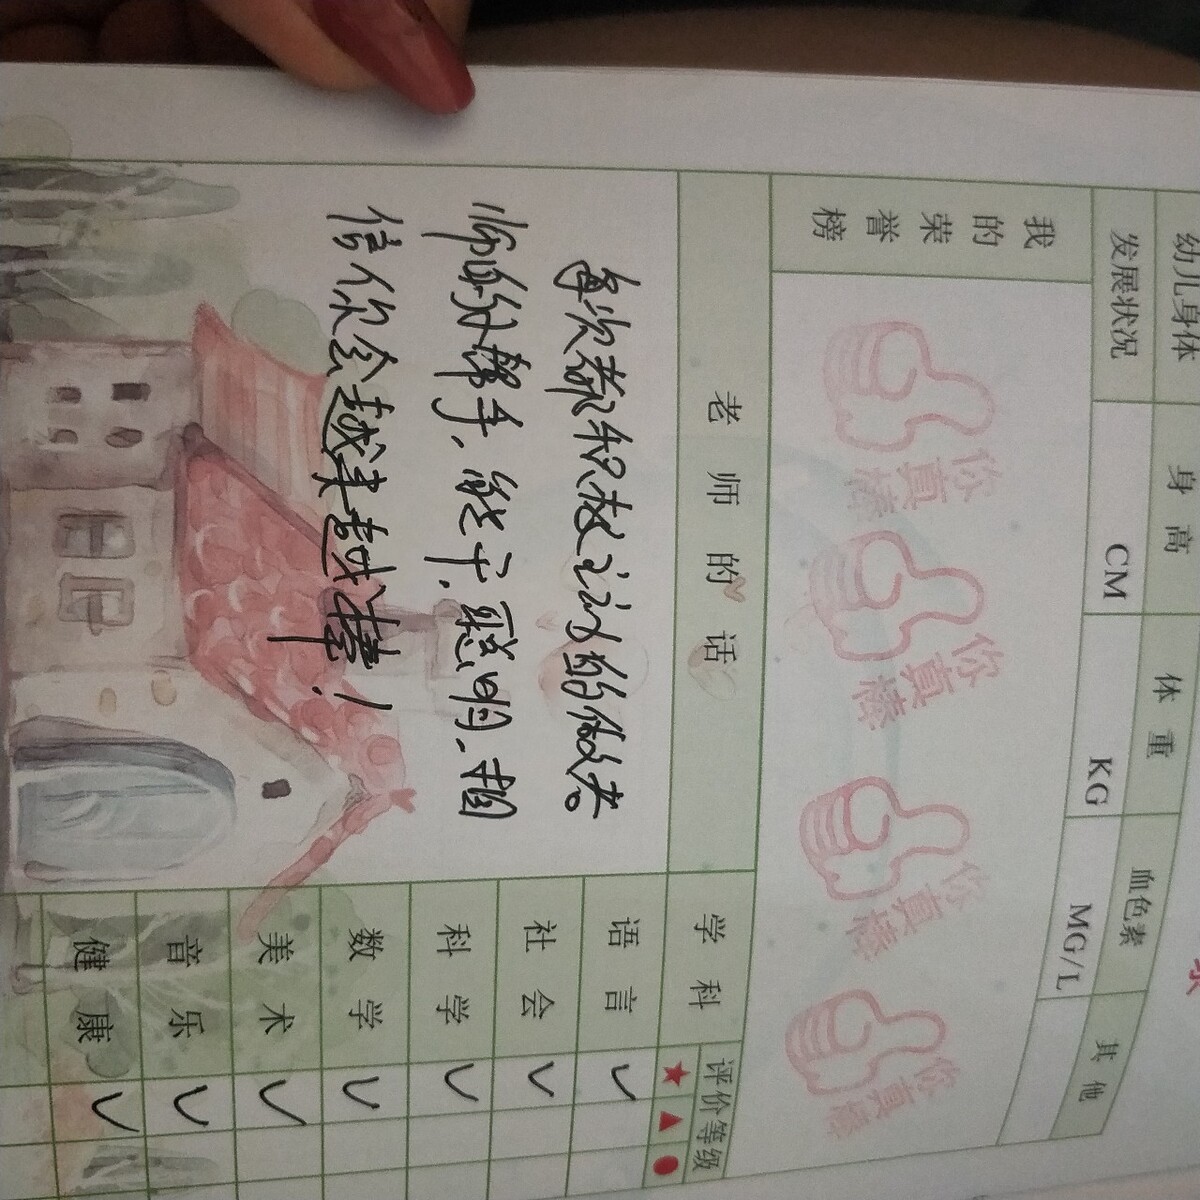 幼儿身体发展状况
身高
体重
血色素
其他
CM
KG
MG/L
我的荣誉榜
你真棒
你真棒
你真棒
你真棒
老师的话
每次都积极主动的做老
师的小帮手，能干，聪明，相
信你会越来越棒！
学科
评价等级
★ ▲ ●
语言 ✓
社会 ✓
科学 ✓
数学 ✓
美术 ✓
音乐 ✓
健康 ✓